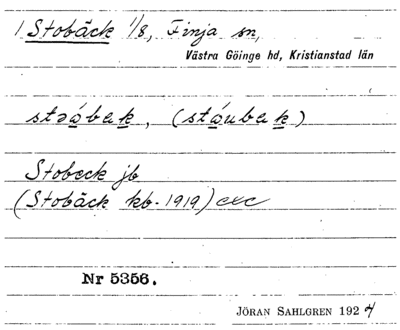 1 Stobäck 1/8, Finja sn,
Västra Göinge hd, Kristianstad län
stəábak, (stáubak)
Stobeck jb
(Stobäck kb. 1919)
Nr 5356.
JÖRAN SAHLGREN 1924